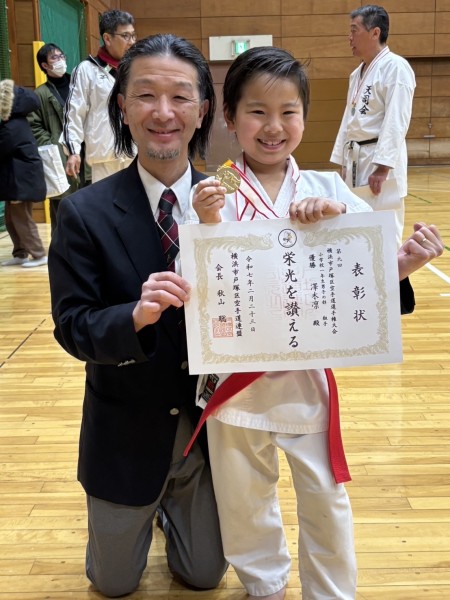 表彰状
第九回
横浜市戸塚区空手道選手権大会
小学校一年生男子の部 組手
優勝 澤木涼 殿
栄光を讃える
令和七年二月二十三日
横浜市戸塚区空手道連盟
会長 秋山 聡
天司会